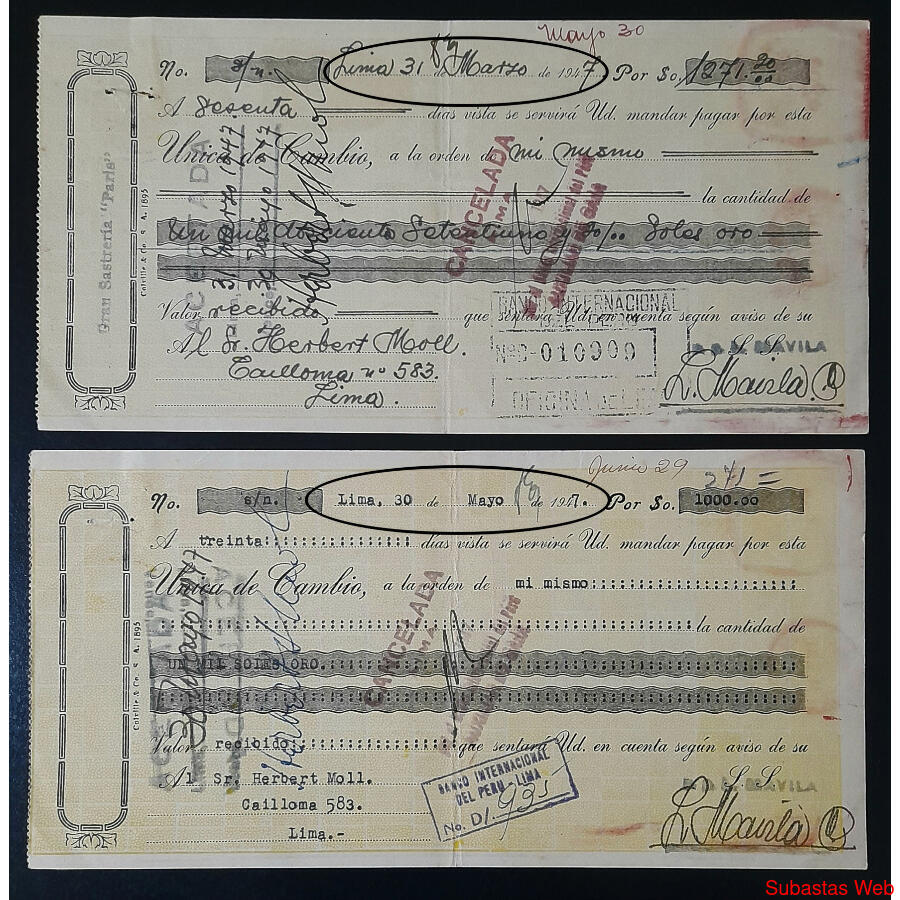 Mayo 30
No. s/n. Lima 31 de Marzo de 1947 Por So. 1271.20/00
A Sesenta días vista se servirá Ud. mandar pagar por esta
Unica de Cambio, a la orden de mi mismo
la cantidad de
Un mil doscientos Setentiuno y 20/00 Soles oro
Valor recibido que sentará Ud. en cuenta según aviso de su
Al Sr. Herbert Moll. S. S.
Cailloma nº 583.
Lima.
Gran Sastrería "Paris"
Colville & Co. S. A. 1895
ACEPTADA
31 Marzo 1947
30 Mayo 1947
CANCELADA
LIMA
BANCO INTERNACIONAL
010909
OFICINA DEL
MAVILA
L. Mavila
Junio 29
271=
No. s/n. Lima, 30 de Mayo de 1947. Por So. 1000.00
A treinta días vista se servirá Ud. mandar pagar por esta
Unica de Cambio, a la orden de mi mismo
la cantidad de
UN MIL SOLES ORO
Valor recibido que sentará Ud. en cuenta según aviso de su
Al Sr. Herbert Moll. S. S.
Cailloma 583.
Lima.-
Colville & Co. S. A. 1895
30 Mayo 1947
CANCELADA
LIMA
BANCO INTERNACIONAL
DEL PERU - LIMA
No. D/. 995
MAVILA
L. Mavila
Subastas Web